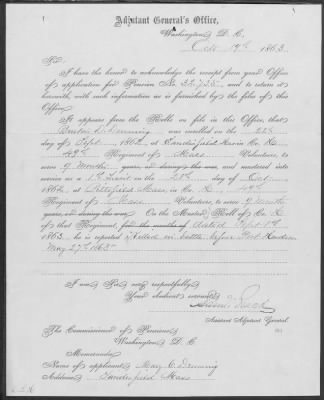 Adjutant General's Office,
Washington, D. C.
Oct. 19th 1863.
Sir:
I have the honor to acknowledge the receipt from your Office
of application for Pension No. 32,735, and to return it
herewith, with such information as is furnished by the files of this
Office.
It appears from the Rolls on file in this Office, that
Deming was enrolled on the 22d
day of Sept., 1862, at Sandisfield Mass in Co. K,
49th Regiment of Mass Volunteers, to
serve 9 Months years, or during the war, and mustered into
service as a 1st Lieut. on the 28th day of Oct.
1862, at Pittsfield Mass, in Co. K, 49th
Regiment of Mass Volunteers, to serve 9 Months
years, or during the war. On the Muster Roll of Co. K
of that Regiment, for the months of dated Sept 1st
1863, he is reported "Killed in battle before Port Hudson
May 27th 1863"
I am, Sir, very respectfully,
Your obedient servant,
Assistant Adjutant General.
The Commissioner of Pensions,
Washington, D. C.
Memoranda:
Name of applicant, Mary C. Deming
Address, Sandisfield Mass